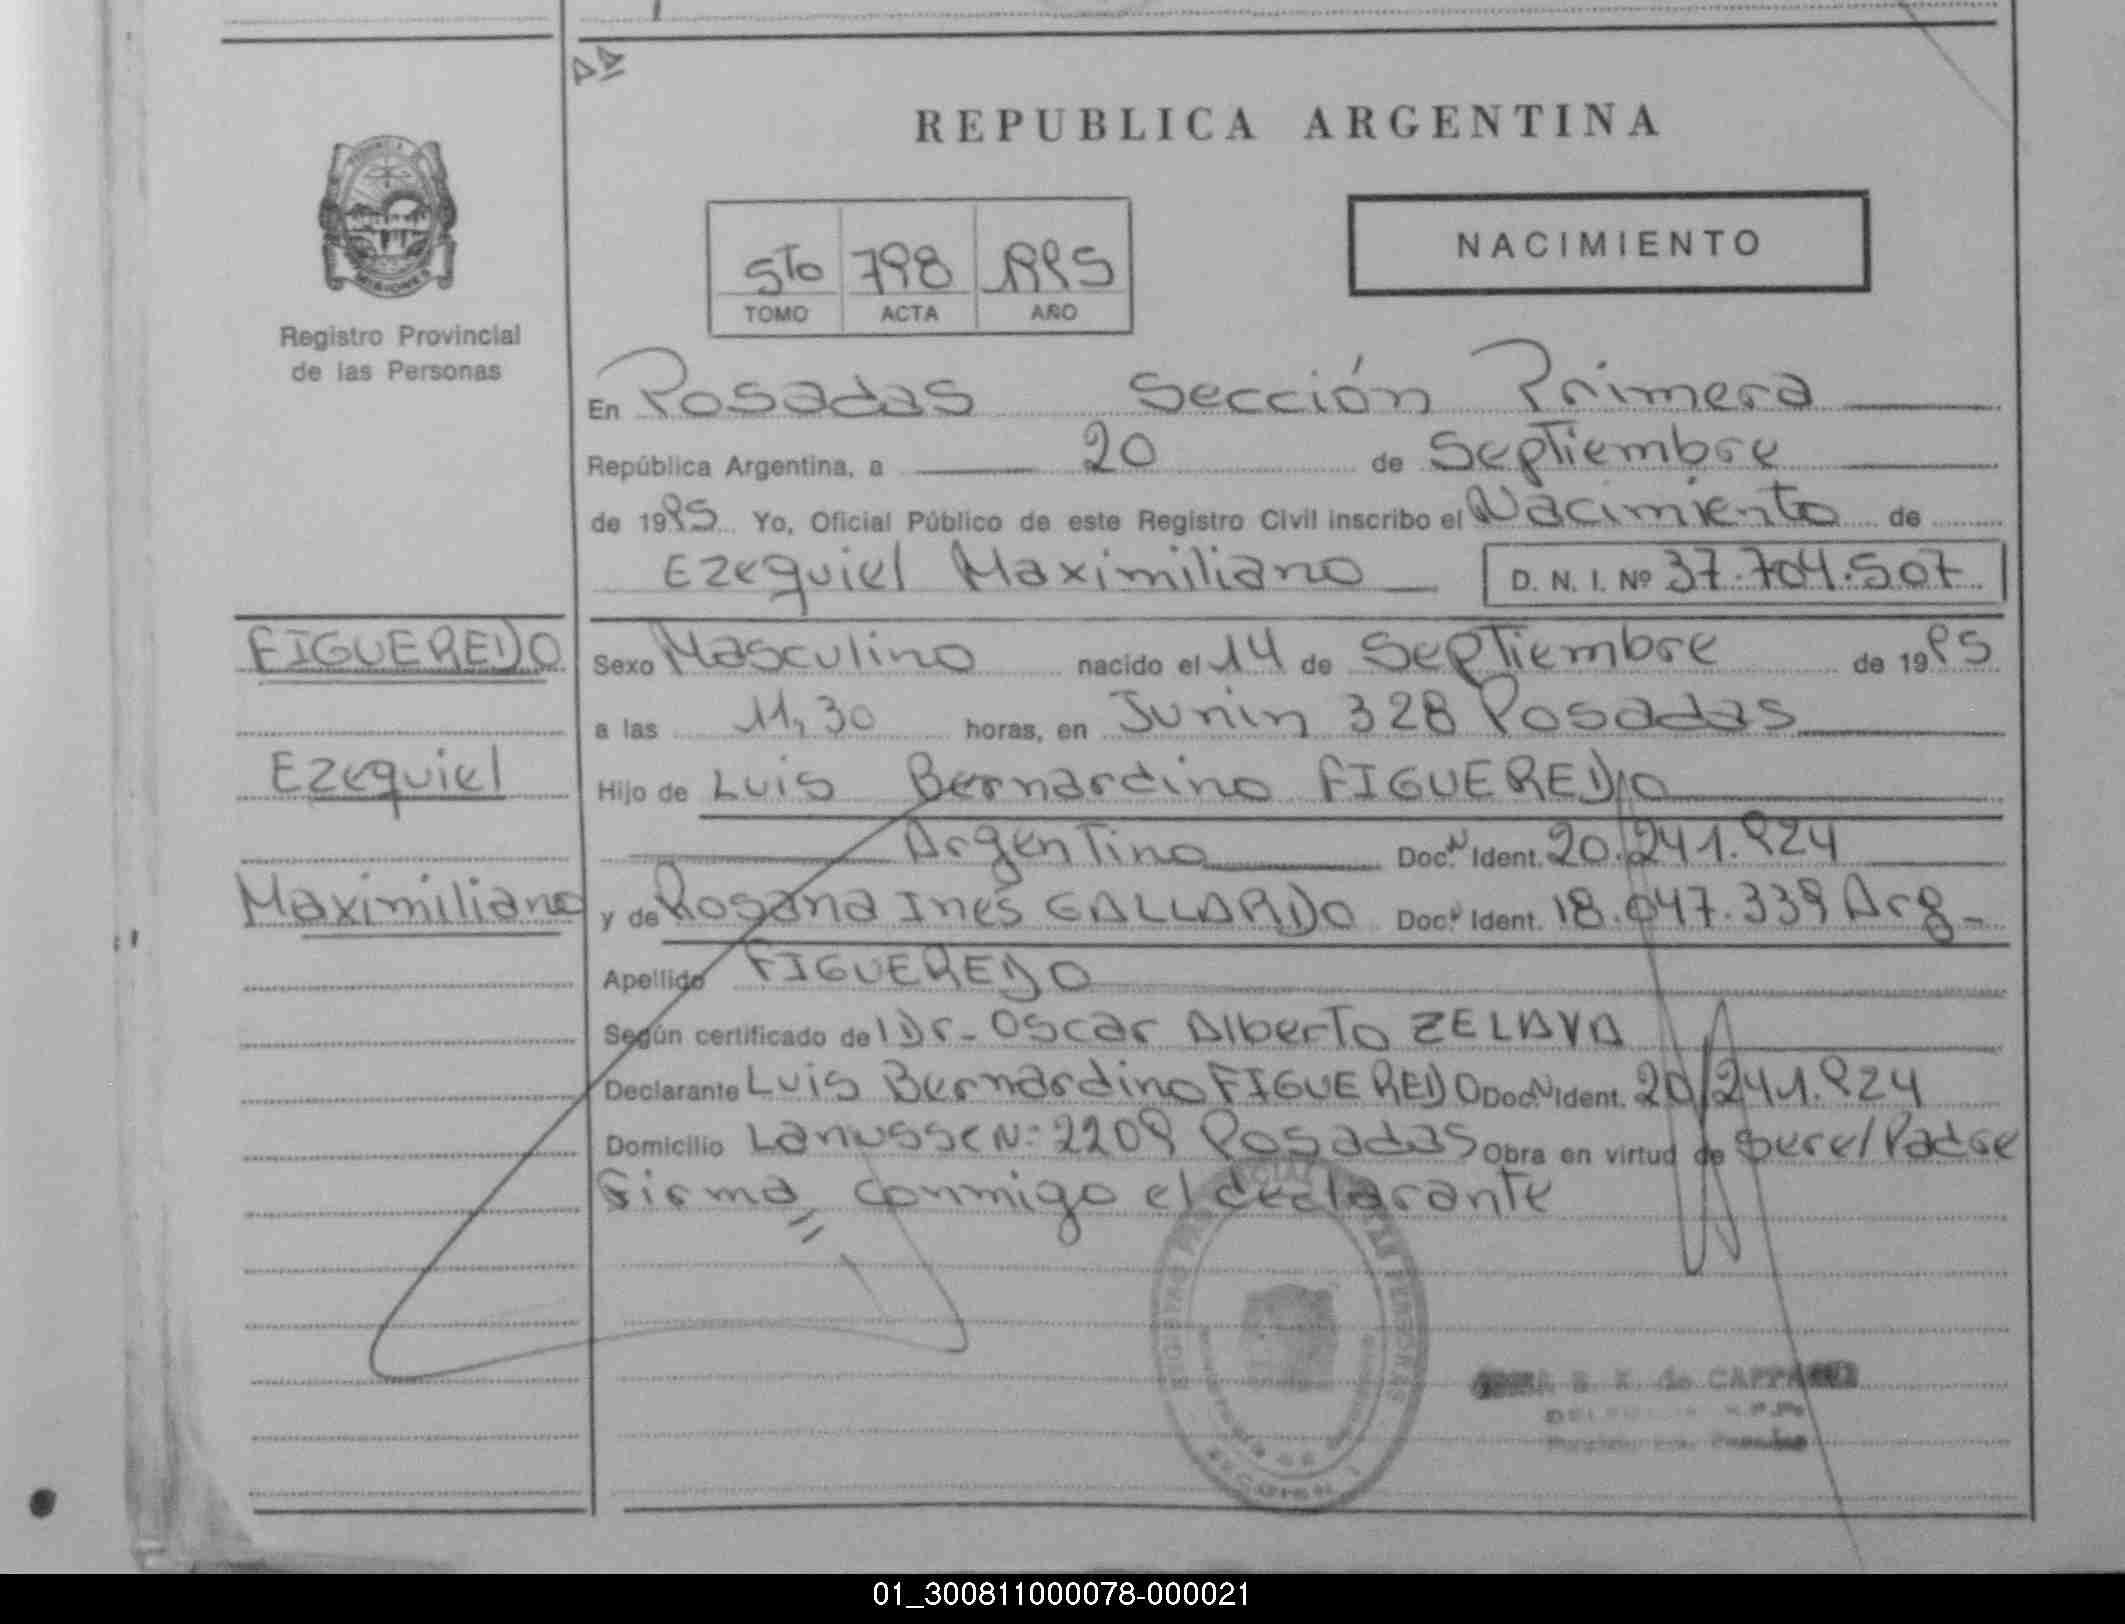 REPUBLICA ARGENTINA
NACIMIENTO
5to 798 1995
TOMO ACTA AÑO
PROVINCIA
MISIONES
Registro Provincial
de las Personas
En Posadas Sección Primera
República Argentina, a 20 de Septiembre
de 1995 Yo, Oficial Público de este Registro Civil inscribo el Nacimiento de
Ezequiel Maximiliano D. N. I. Nº 37.704.507
FIGUEREDO
Ezequiel
Maximiliano
Sexo Masculino nacido el 14 de Septiembre de 1995
a las 11,30 horas, en Junin 328 Posadas
Hijo de Luis Bernardino FIGUEREDO
Argentino Doc. N Ident. 20.241.924
y de Rosana Inés GALLARDO Doc. N Ident. 18.047.339 Arg-
Apellido FIGUEREDO
Según certificado de l Dr- Oscar Alberto ZELAYA
Declarante Luis Bernardino FIGUEREDO Doc. N Ident. 20.241.924
Domicilio Lanusse Nº 2209 Posadas Obra en virtud de Ser el Padre
Firma conmigo el declarante
REGISTRO PROVINCIAL DE LAS PERSONAS
de CAPPA
01_300811000078-000021